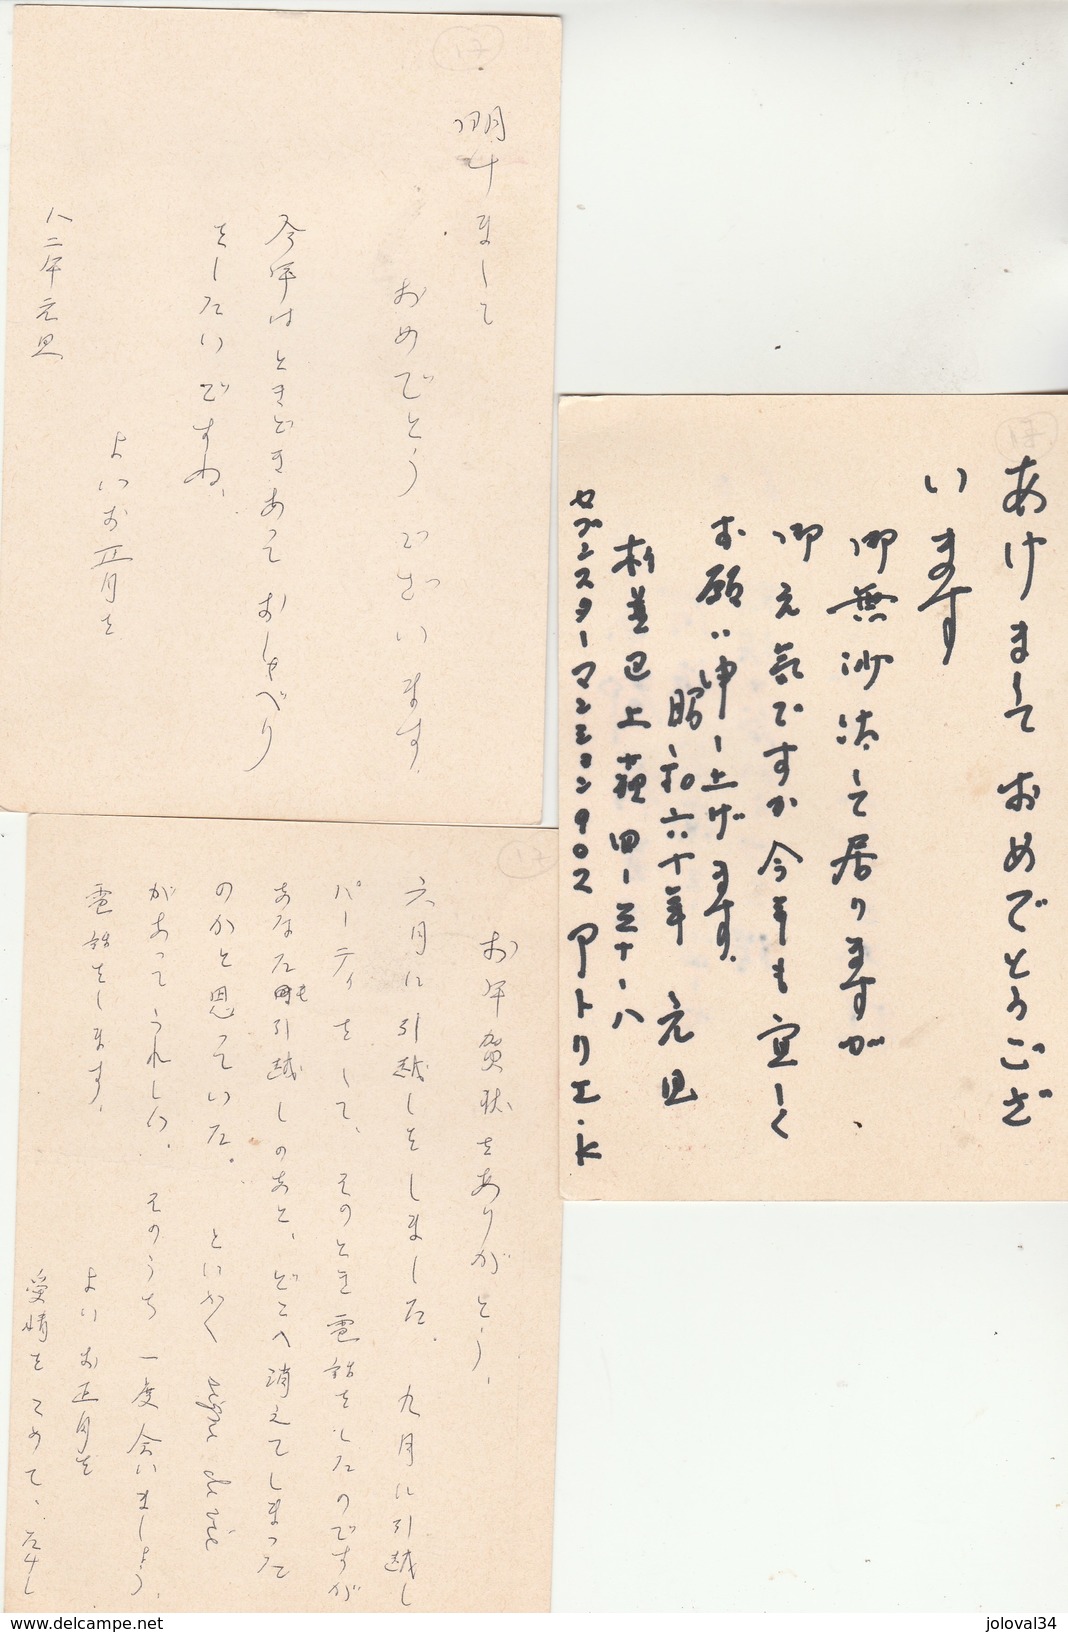 明けまして
おめでとうございます.
今年はときどきあって おしゃべり
をしたいですね、
よいお正月を
八二年元旦
あけましておめでとうござ
います
御無沙汰して居りますが、
御元気ですか今年も宜しく
お願い申し上げます。
昭和六十年 元旦
杉並区上荻四ー三十ー八
セブンスターマンション902 アトリエ・K
お年賀状をありがとう.
六月に引越しをしました. 九月に引越し
パーティをして、そのとき電話をしたのですが
あなたも引越しのあと、どこへ消えてしまった
のかと思っていた. とにかく signe de vie
があってうれしい. そのうち一度会いましょう.
電話をします.
よいお正月を
愛情をこめて、
delcampe.net
joloval34